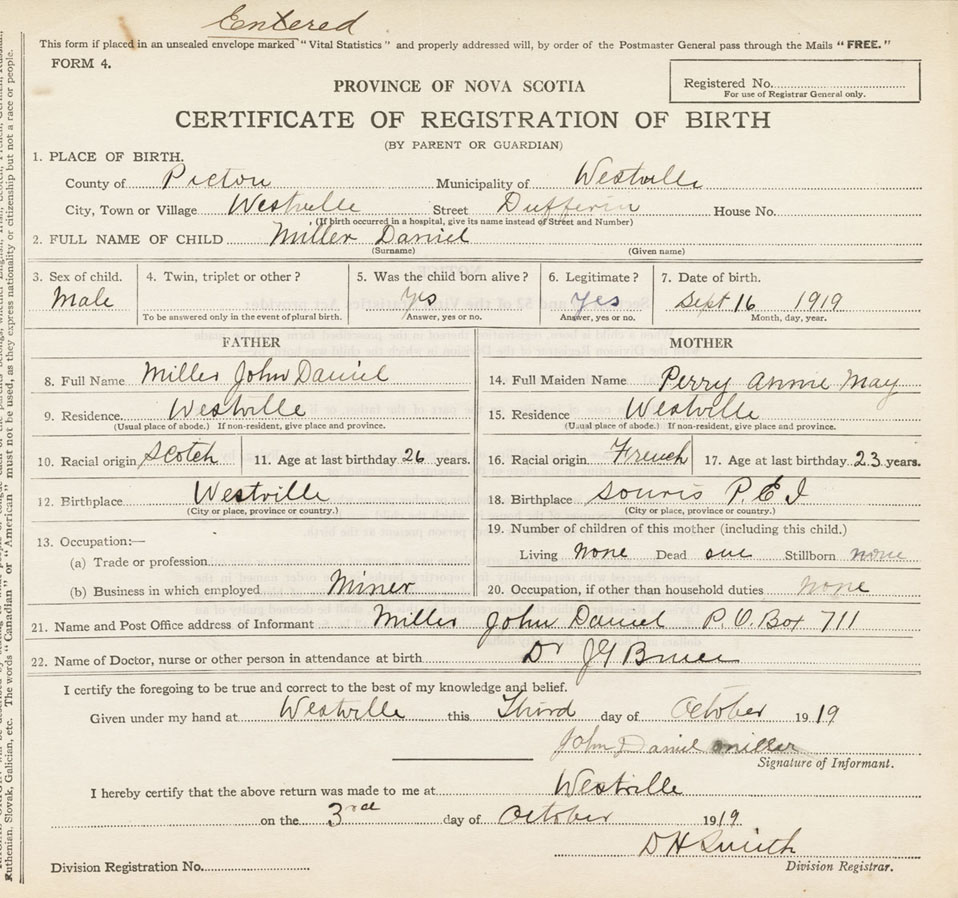 Entered
This form if placed in an unsealed envelope marked "Vital Statistics" and properly addressed will, by order of the Postmaster General pass through the Mails "FREE."
FORM 4.
PROVINCE OF NOVA SCOTIA
Registered No.
For use of Registrar General only.
CERTIFICATE OF REGISTRATION OF BIRTH
(BY PARENT OR GUARDIAN)
1. PLACE OF BIRTH.
County of Pictou Municipality of Westville
City, Town or Village Westville Street Dufferin House No.
(If birth occurred in a hospital, give its name instead of Street and Number)
2. FULL NAME OF CHILD Miller Daniel
(Surname) (Given name)
3. Sex of child. 4. Twin, triplet or other? 5. Was the child born alive? 6. Legitimate? 7. Date of birth.
Male yes Yes Sept 16 1919
To be answered only in the event of plural birth. Answer, yes or no. Answer, yes or no. Month, day, year.
FATHER MOTHER
8. Full Name Miller John Daniel 14. Full Maiden Name Perry Annie May
9. Residence Westville 15. Residence Westville
(Usual place of abode.) If non-resident, give place and province. (Usual place of abode.) If non-resident, give place and province.
10. Racial origin Scotch 11. Age at last birthday 26 years. 16. Racial origin French 17. Age at last birthday 23 years.
12. Birthplace Westville 18. Birthplace Souris P.E I
(City or place, province or country.) (City or place, province or country.)
13. Occupation:— 19. Number of children of this mother (including this child.)
(a) Trade or profession Living none Dead one Stillborn none
(b) Business in which employed Miner 20. Occupation, if other than household duties, none
21. Name and Post Office address of Informant Miller John Daniel P.O. Box 711
22. Name of Doctor, nurse or other person in attendance at birth Dr
I certify the foregoing to be true and correct to the best of my knowledge and belief.
Given under my hand at Westville this Third day of October 1919
John Daniel Miller
Signature of Informant.
I hereby certify that the above return was made to me at Westville
on the 3rd day of October 1919
D H Smith
Division Registration No. Division Registrar.
Ruthenian, Slovak, Galician, etc. The words "Canadian" or "American" must not be used, as they express nationality or citizenship but not a race or people.